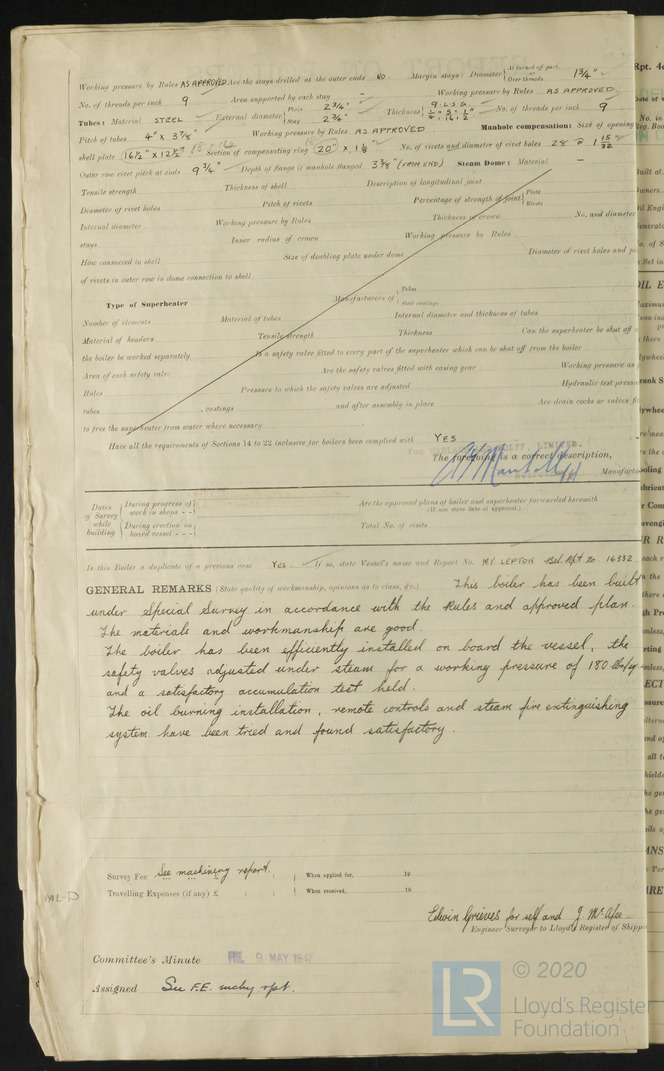 Working pressure by Rules AS APPROVED Are the stays drilled at the outer ends NO Margin stays: Diameter { At turned off part, or Over threads 1¾"
No. of threads per inch 9 Area supported by each stay - Working pressure by Rules AS APPROVED
Tubes: Material STEEL External diameter { Plain 2¾" Stay 2¾" Thickness { 9 L.S.G. No. of threads per inch 9
Pitch of tubes 4" x 3⅞" Working pressure by Rules AS APPROVED Manhole compensation: Size of opening
shell plate 16½" x 12½" Section of compensating ring 20" x 1⅛" No. of rivets and diameter of rivet holes 28 @ 1 15/32
Outer row rivet pitch at ends 9¾" Depth of flange if manhole flanged 3⅜" (FROM END) Steam Dome: Material -
Tensile strength Thickness of shell Description of longitudinal joint
Diameter of rivet holes Pitch of rivets Percentage of strength of joint { Plate Rivets
Internal diameter Working pressure by Rules Thickness of crown No. and diameter
stays Inner radius of crown Working pressure by Rules
How connected to shell Size of doubling plate under dome Diameter of rivet holes and
of rivets in outer row in dome connection to shell
Type of Superheater Manufacturers of { Tubes Steel castings
Number of elements Material of tubes Internal diameter and thickness of tubes
Material of headers Tensile strength Thickness Can the superheater be shut off
the boiler be worked separately Is a safety valve fitted to every part of the superheater which can be shut off from the boiler
Area of each safety valve Are the safety valves fitted with easing gear Working pressure as
Rules Pressure to which the safety valves are adjusted Hydraulic test pressure
tubes , castings and after assembly in place Are drain cocks or valves
to free the superheater from water where necessary
Have all the requirements of Sections 14 to 22 inclusive for boilers been complied with YES
The foregoing is a correct description,
Dates of Survey while building { During progress of work in shops - - Are the approved plans of boiler and superheater forwarded herewith
(If not state date of approval.)
{ During erection on board vessel - - - Total No. of visits
Is this Boiler a duplicate of a previous case Yes If so, state Vessel's name and Report No. M.V. LEPTON Bel. Rpt. No. 14332
GENERAL REMARKS (State quality of workmanship, opinions as to class, &c.) This boiler has been built
under Special Survey in accordance with the Rules and approved plan.
The materials and workmanship are good.
The boiler has been efficiently installed on board the vessel, the
safety valves adjusted under steam for a working pressure of 180 lbs/
and a satisfactory accumulation test held.
The oil burning installation, remote controls and steam fire extinguishing
system have been tried and found satisfactory.
Survey Fee See machinery report. When applied for, 19
Travelling Expenses (if any) £ : : When received, 19
ML-D
Edwin Grieves for self and J. McAfee
Engineer Surveyor to Lloyd's Register of
Committee's Minute FRI. 9 MAY 1947
Assigned See F.E. mchy rpt.
LR © 2020
Lloyd's Register
Foundation